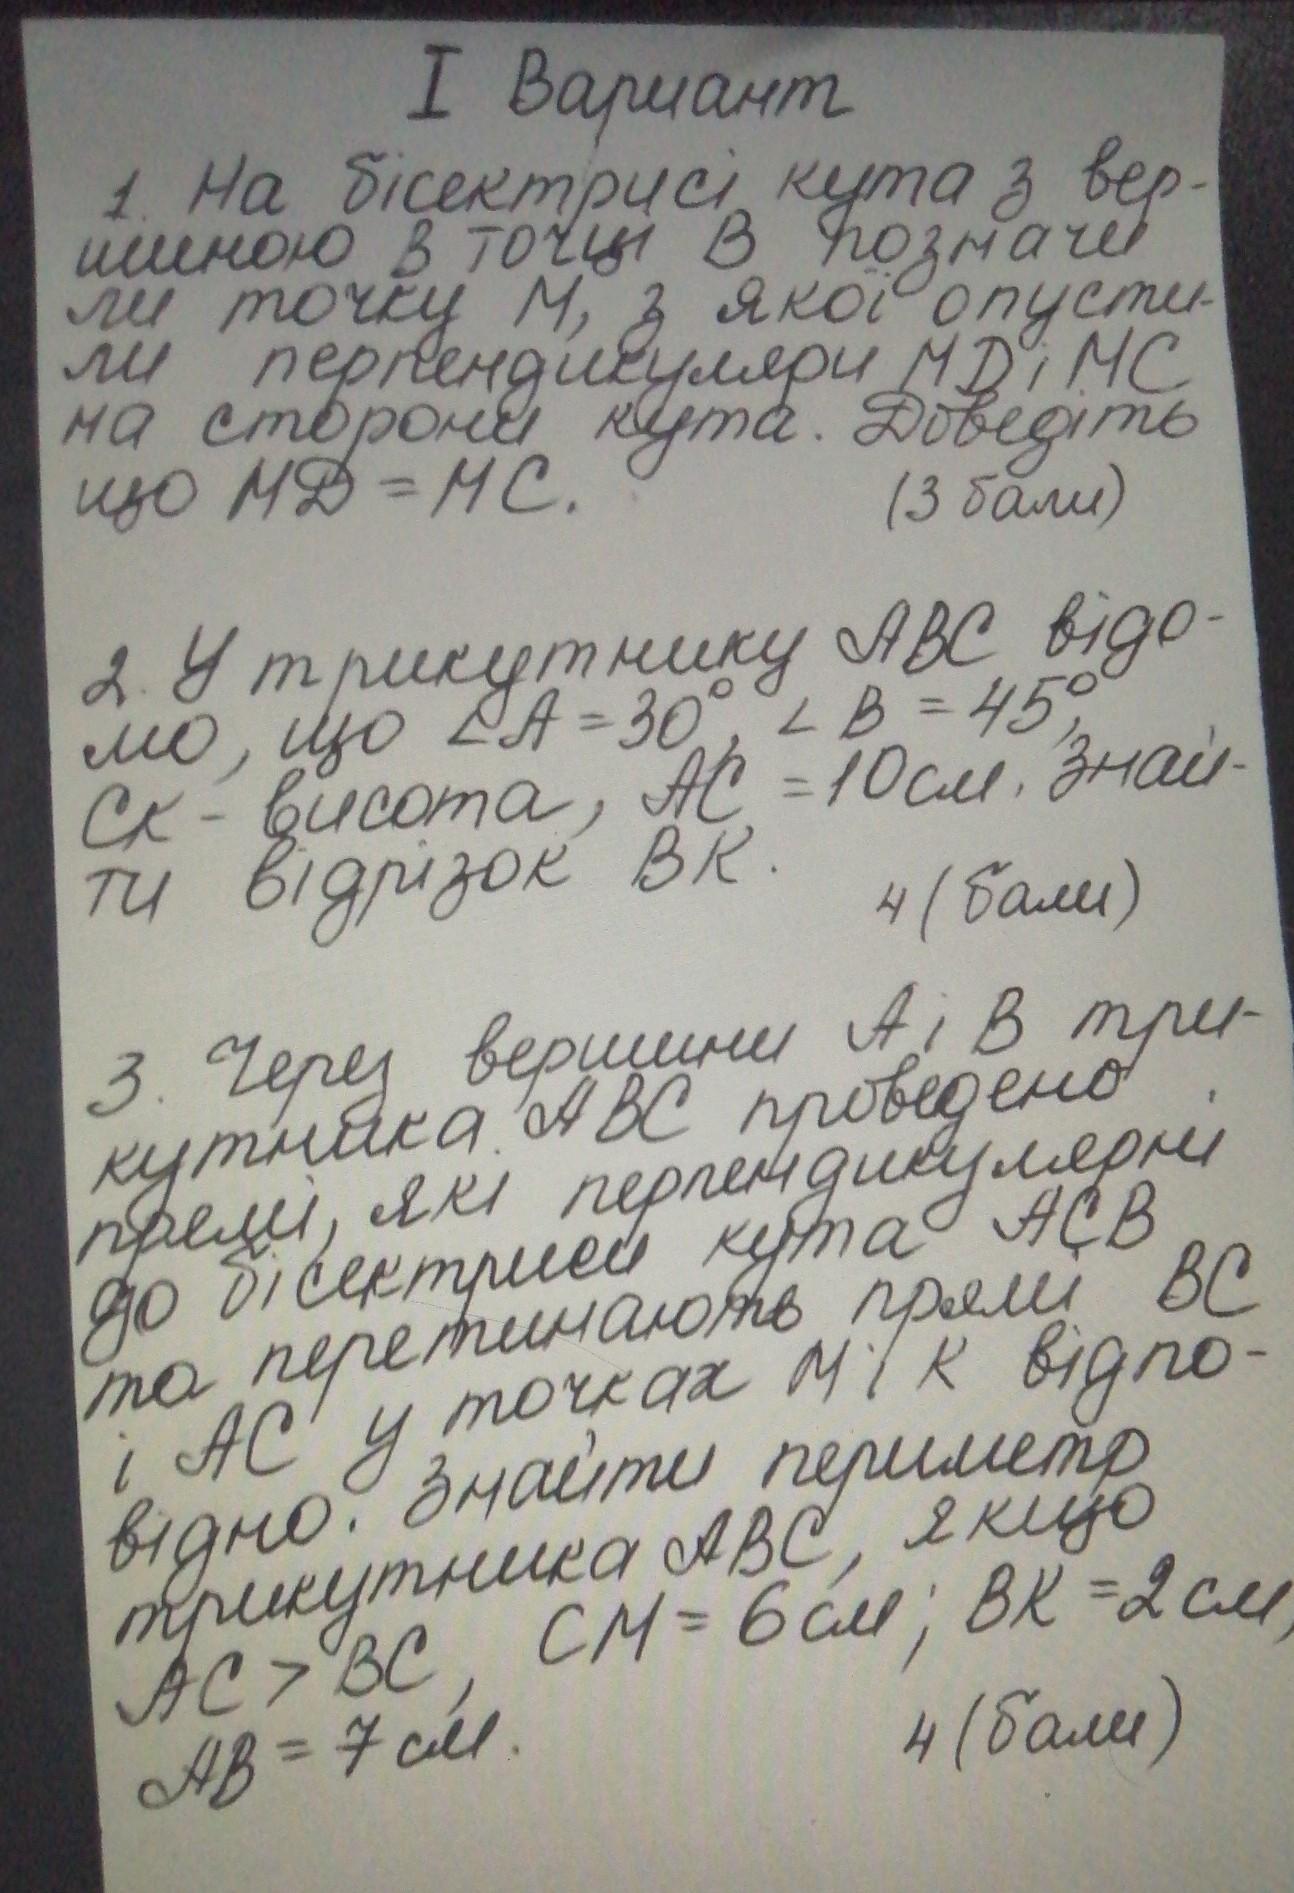 I Вариант
1. На бісектрисі кута з вер-
шиною в точці В позначи
ли точку М, з якої опусти-
ли перпендикуляри МD і МС
на сторони кута. Доведіть
що МD = МС.
(3 бали)
2. У трикутнику АВС відо-
мо, що ∠А = 30°, ∠В = 45°,
СК - висота, АС = 10 см. Знай-
ти відрізок ВК.
4 (бали)
3. Через вершини А і В три-
кутника АВС проведено
прямі, які перпендикулярні
до бісектриси кута АСВ
та перетинають прямі ВС
і АС у точках М і К відпо-
відно. Знайти периметр
трикутника АВС, якщо
АС > ВС, СМ = 6 см; ВК = 2 см,
АВ = 7 см.
4 (бали)